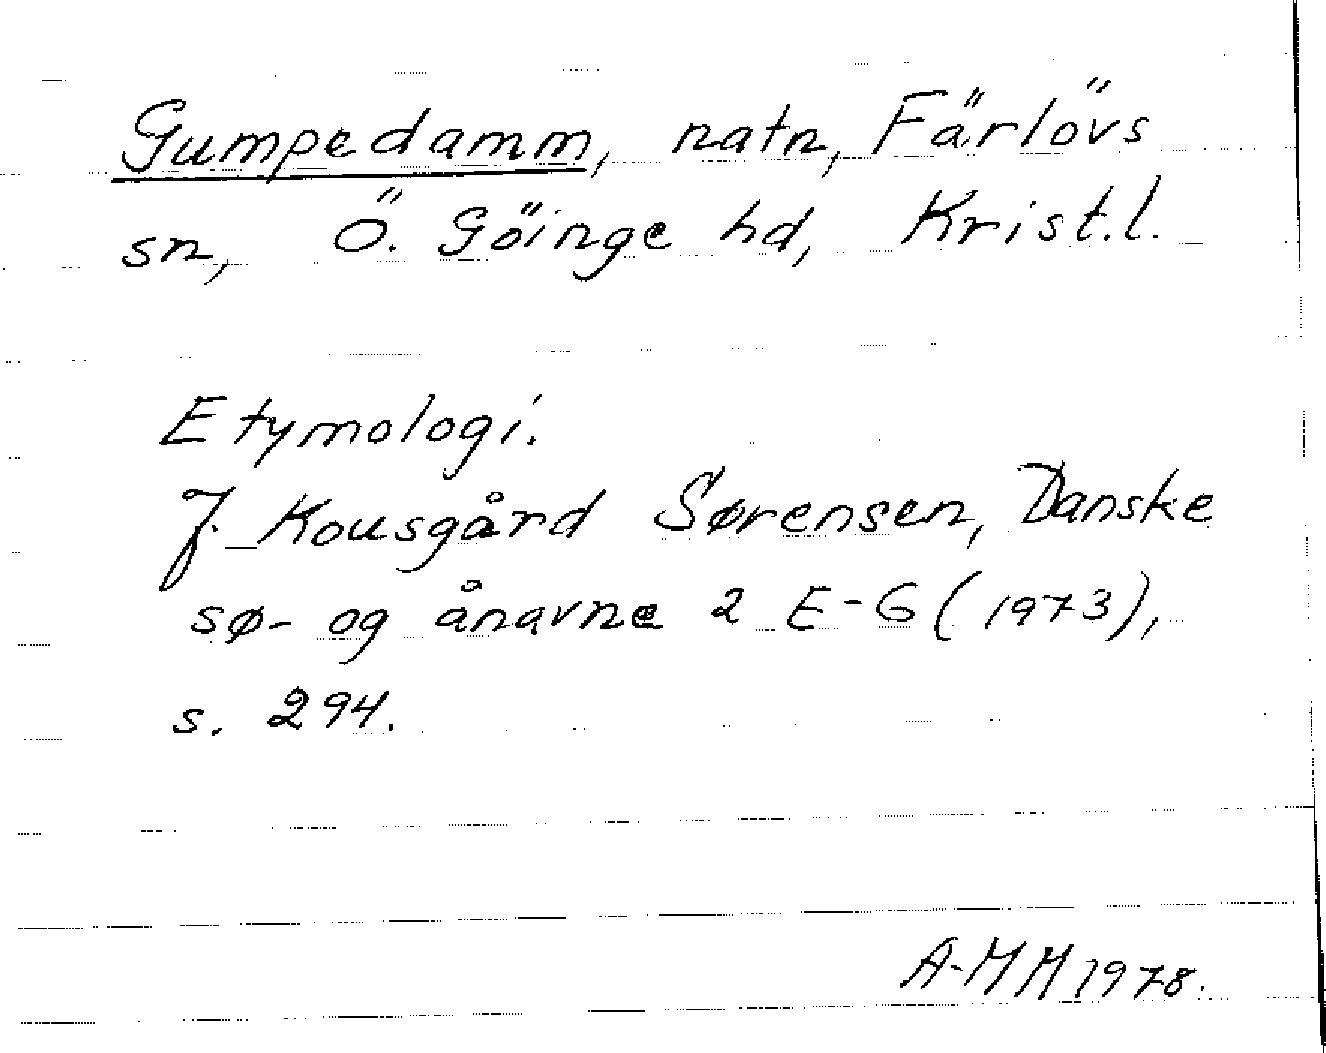 Gumpedamm, natn, Färlövs
sn, Ö. Göinge hd, Krist.l.
Etymologi.
J. Kousgård Sørensen, Danske
sø- og ånavne 2 E-G (1973),
s. 294.
A-MM 1978.